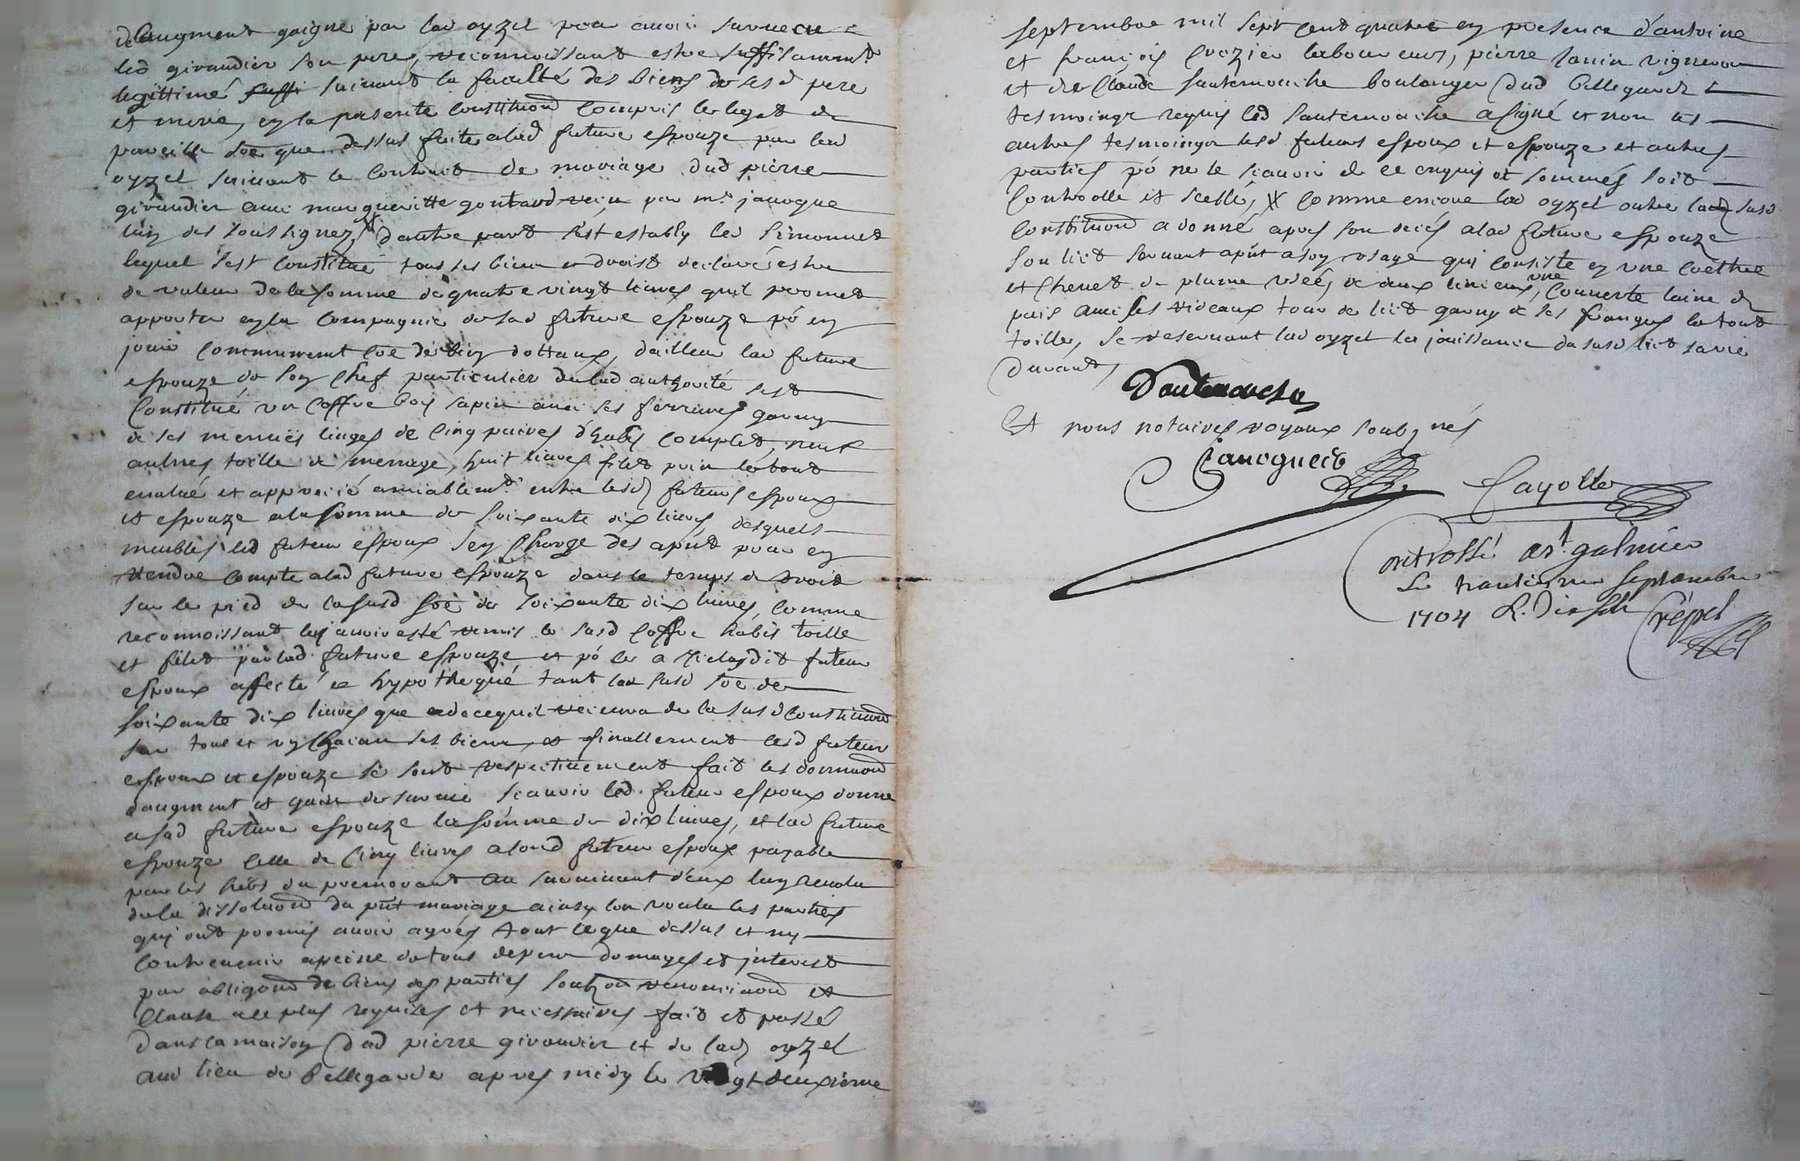 delaugment gaigné par lad oyzel pour avoir survecu
led giraudier son pere, reconnoissant estre suffisamm.t
legittimé suivant la faculté des biens de sesd pere
et mere, en la presente constituon compris le legat de
pareille soe que dessus faite alad future espouze par lad
oyzel suivant le contract de mariage dud pierre
giraudier avec margueritte gontard receu par m.e janogue
lun des soussignez, d'autre part s'est estably led simonnet
lequel sest constitué tous ses biens et droits declarés estre
de valeur de la somme de quatre vingt livres quil promet
apporter en la compagnie de sad future espouze pó en
jouir communement coe de bien dottaux, d'ailleur lad future
espouze de son chef particulier de lad authorité sest
constitué un coffre bois sapin avec ses ferrures garny
de ses menues linges de cinq paires d'habits complets, neuf
aulnes toille de menage, huit livres filet prix le tout
evalué et apprecié amiablem.t entre lesd futeurs espoux
et espouze ala somme de soixante dix livres, desquels
meubles led futeur espoux sen charge des apñt pour en
rendre compte alad future espouze dans le temps de droit
sur le pied de lasusd soe de soixante dix livres, comme
reconnoissant luy avoir esté remis le susd coffre habits toille
et filet par lad future espouze et pó ce a icelluy dit futeur
espoux affecté et hypothequé tant lad susd soe de
soixante dix livres que de ce quil recevra de la susd constituon
sur tous et un chacun ses biens, et finallement lesd futeur
espoux et espouze se sont respectivement fait les donnaon
daugment et gain de survie scavoir led futeur espoux donne
a sad future espouze la somme de dix livres, et lad future
espouze celle de cinq livres a sond futeur espoux payable
par les heřs du premourant au survivant d'eux luy
de la dissoluon du pñt mariage ainsy lon voulu les parties
qui ont promis avoir agreé tout ce que dessus et ny
contrevenir a peine de tous depens domages et interest
par obligaon de biens des parties soubz on renonciaon et
clause ace plus requises et necessaires fait et passé
dans la maison dud pierre giraudier et de lad oyzel
aud lieu de bellegarde apres midy le vingt deuxieme
septembre mil sept cent quatre en presence d'antoine
et francois crozier laboureurs, pierre janin vigneron
et de claude sautemouche boulanger dud bellegarde
tesmoings requis led sautemouche a signé et non les
autres tesmoings lesd futeurs espoux et espouze et autres
parties pó ne le scavoir de ce enquis et sommés soit
controllé et scellé, # comme encore lad oyzel outre la susd
constituon a donné apres son decés alad future espouze
son lict servant apñt a son usage qui consiste en une coettre
et chevet de plume uzéé, de deux linceux, une couverte laine de
pais avec les rideaux tour de lict garny de ses franges le tout
toille, se reservant lad oyzel la jouissance du susd lict sa vie
durant,
Sautemouche
Et nous notaires royaux soubz nés
Janoguet
Cayotte
Controllé a s.t galmier
le trantieme septembre
1704 R. dix sols
Crépet